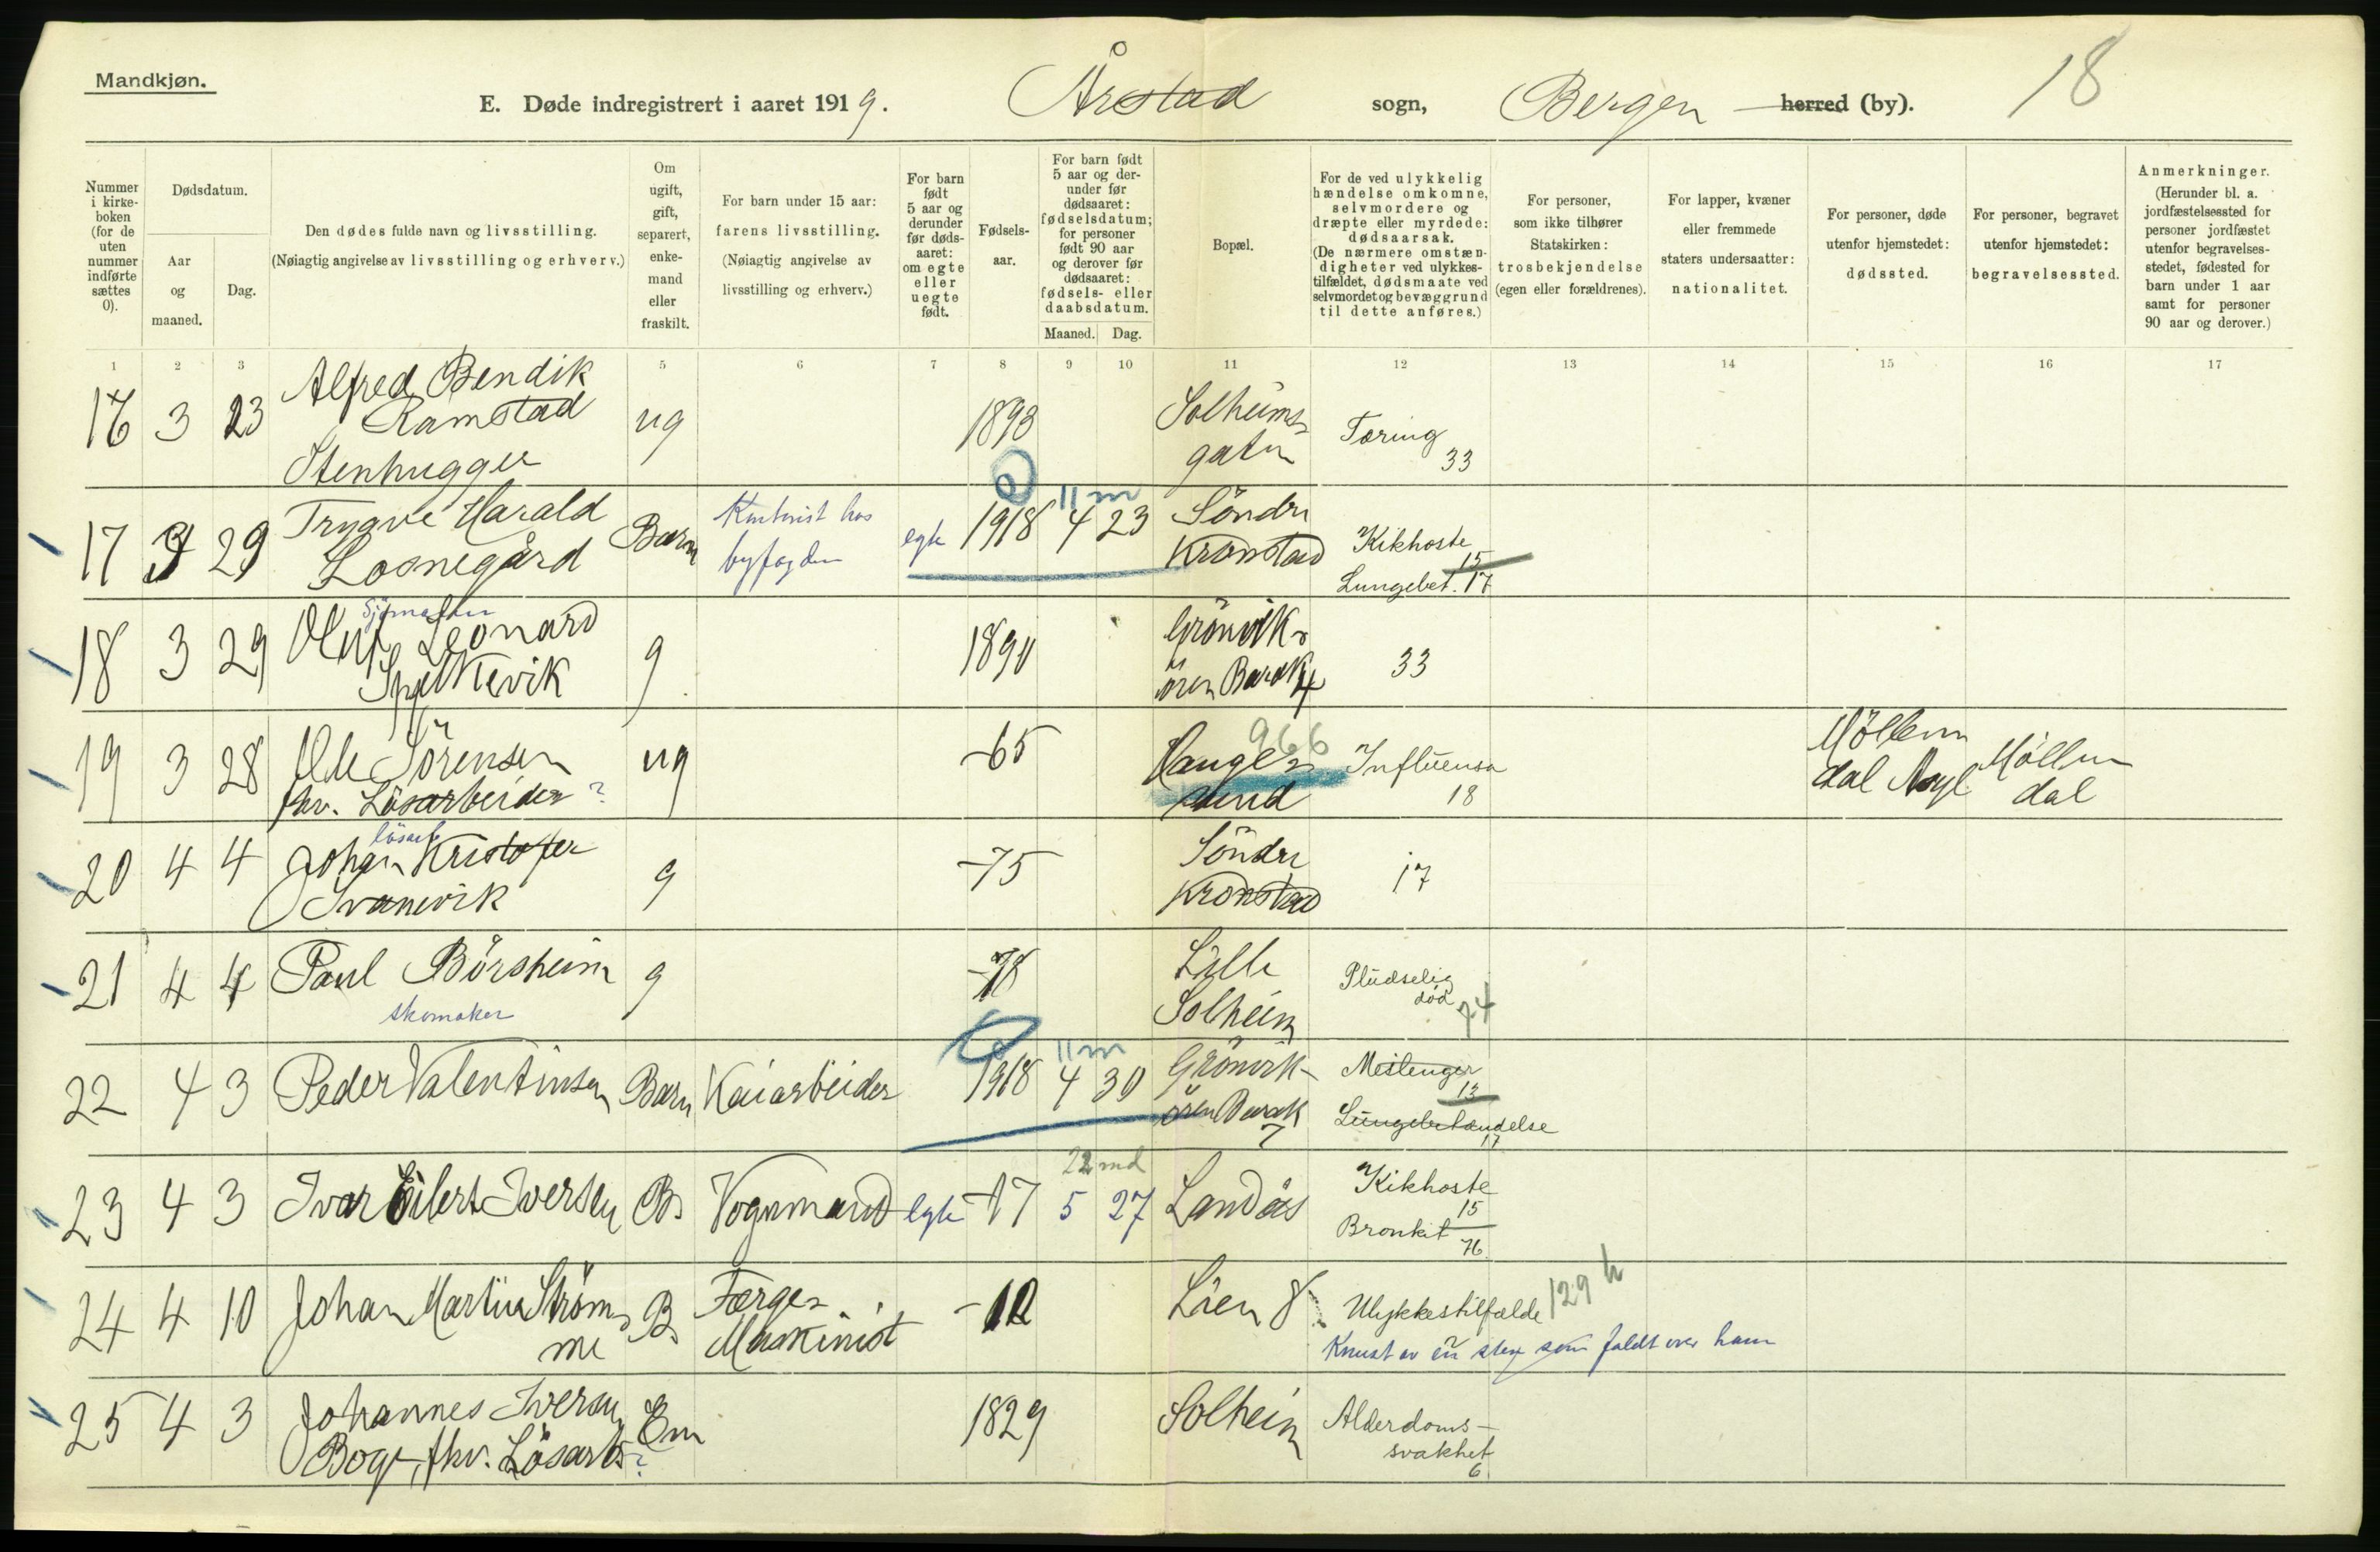 Mandkjøn.
E. Døde indregistrert i aaret 1919. Årstad sogn, Bergen herred (by). 18
Nummer i kirkeboken (for de uten nummer indførte sættes 0).
Dødsdatum.
Aar og maaned.
Dag.
Den dødes fulde navn og livsstilling.
(Nøiagtig angivelse av livsstilling og erhverv.)
Om ugift, gift, separert, enkemand eller fraskilt.
For barn under 15 aar:
farens livsstilling.
(Nøiagtig angivelse av livsstilling og erhverv.)
For barn født 5 aar og derunder før dødsaaret: om egte eller uegte født.
Fødselsaar.
For barn født 5 aar og derunder før dødsaaret: fødselsdatum; for personer født 90 aar og derover før dødsaaret: fødsels- eller daabsdatum.
Maaned. Dag.
Bopæl.
For de ved ulykkelig hændelse omkomne, selvmordere og dræpte eller myrdede: dødsaarsak.
(De nærmere omstændigheter ved ulykkestilfældet, dødsmaate ved selvmordet og bevæggrund til dette anføres.)
For personer, som ikke tilhører Statskirken: trosbekjendelse (egen eller forældrenes).
For lapper, kvæner eller fremmede staters undersaatter: nationalitet.
For personer, døde utenfor hjemstedet: dødssted.
For personer, begravet utenfor hjemstedet: begravelsessted.
Anmerkninger.
(Herunder bl. a. jordfæstelsessted for personer jordfæstet utenfor begravelsesstedet, fødested for barn under 1 aar samt for personer 90 aar og derover.)
1 2 3 5 6 7 8 9 10 11 12 13 14 15 16 17
16 3 23 Alfred Bendik Ramstad Stenhugger ug 1893 Solheimsgaten Tæring 33
17 3 29 Trygve Harald Losnegård Barn Kontorist hos byfogden egte 0 1918 11 m 4 23 Söndre Kronstad Kikhoste 15 Lungebet. 17
18 3 29 Sjömann Oluf Leonard Spjelkevik g 1890 Grönviksören Barak 4 33
19 3 28 Ole Sörensen fhv. Lösarbeider ? ug -65 966 Haugesund Influensa 18 Möllendal Asyl Möllendal
20 4 4 lösarb Johan Kristofer Svanevik g -75 Söndre Kronstad 17
21 4 4 Paul Börsheim skomaker g -78 Lille Solheim Pludselig död 74
22 4 3 Peder Valentinsen Barn Kaiarbeider 1918 11 m 4 30 Grönviksören Barak 7 Meslenger 13 Lungebetændelse 17
23 4 3 Ivar Eilert Iversen B. Vognmand egte -17 22 md 5 27 Landås Kikhoste 15 Bronkit 76
24 4 10 Johan Martin Strömme B. Færge-Maskinist -12 Lien 8 Ulykkestilfælde 129 h
Knust av en sten som faldt over ham
25 4 3 Johannes Iversen Boge, fhv. Lösarb. ? Em 1829 Solheim Alderdomssvakhet 6